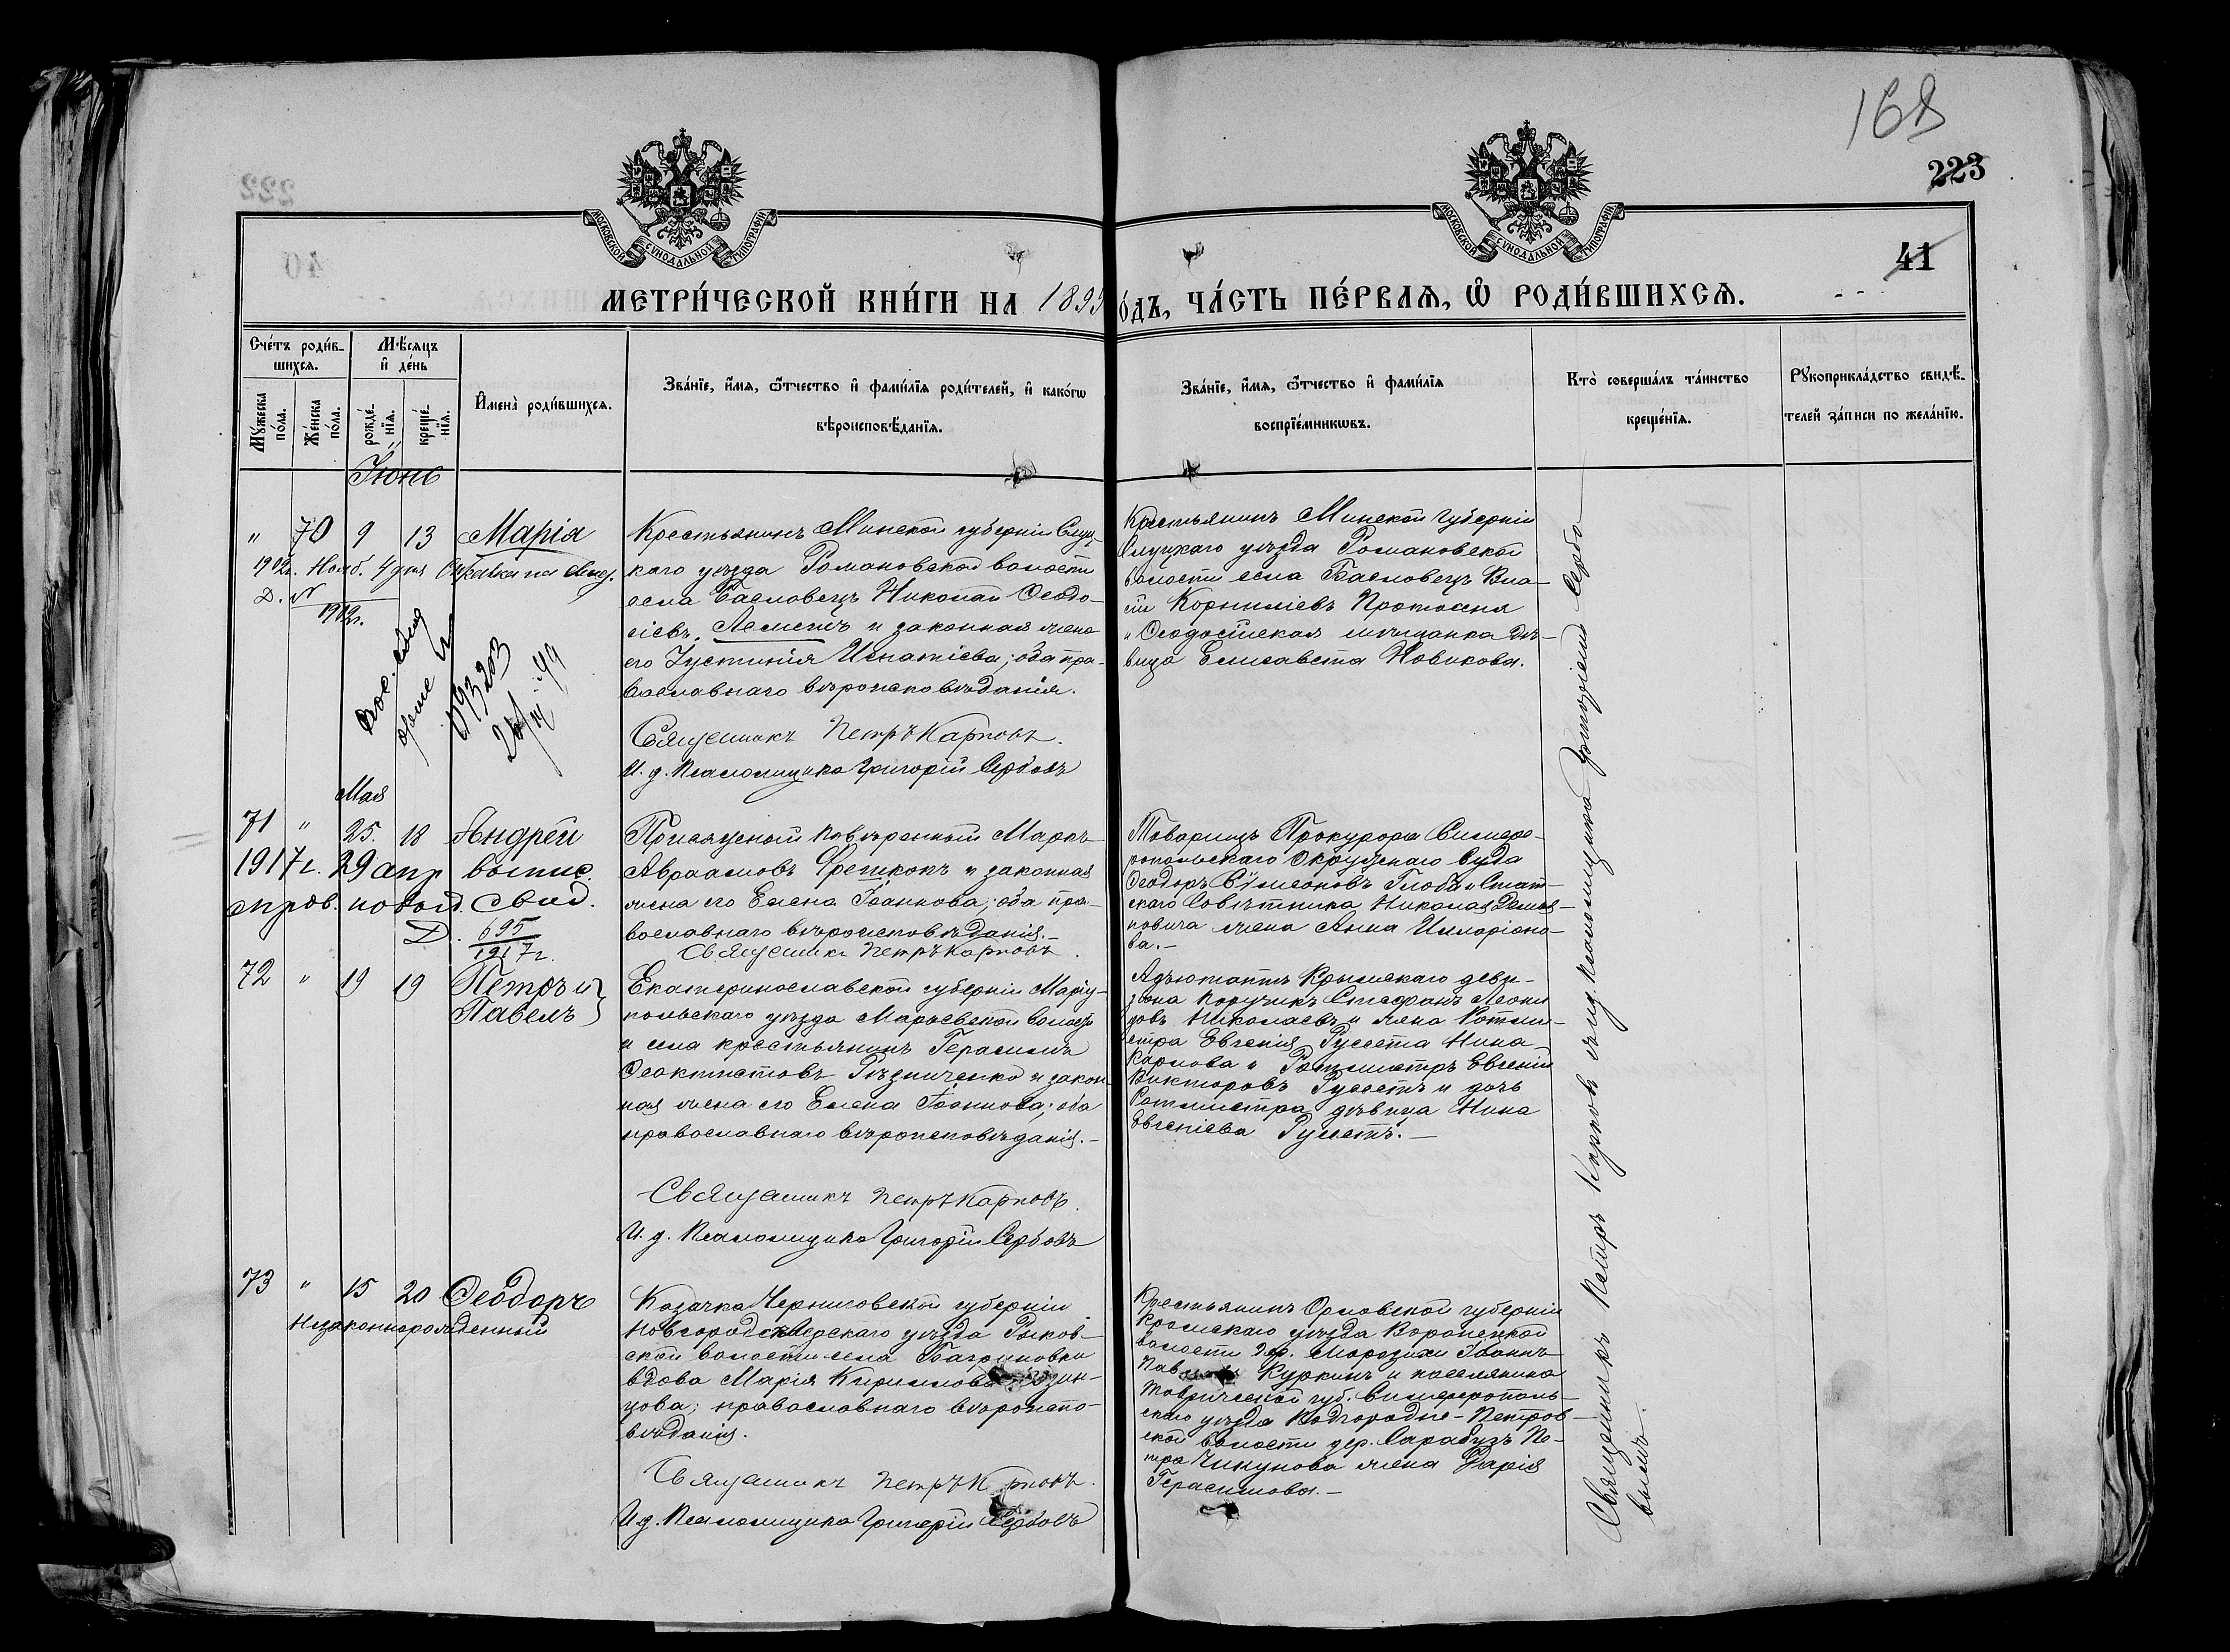 168
223
41
МОСКОВСКОЙ СѴНОДАЛЬНОЙ ТИПОГРАФІИ
МОСКОВСКОЙ СѴНОДАЛЬНОЙ ТИПОГРАФІИ
МЕТРИ́ЧЕСКОЙ КНИ́ГИ НА 1899
О́ДЪ, ЧА́СТЬ ПЕ́РВАѦ, Ѡ҆ РОДИ́ВШИХСѦ.
Сче́тъ роди́в-
шихсѧ.
Мꙋ́жеска по́ла.
Же́нска по́ла.
Мѣ́сѧцъ
и҆ де́нь
рожде́-нїѧ.
креще́-нїѧ.
И҆мена̀ роди́вшихсѧ.
Зва́нїе, и҆́мѧ, ѻ҆́тчество и҆ фами́лїѧ роди́телей, и҆ како́гѡ
вѣроисповѣ́данїѧ.
Зва́нїе, и҆́мѧ, ѻ҆́тчество и҆ фами́лїѧ
воспрїе́мникѡвъ.
Кто̀ соверша́лъ та́инство
креще́нїѧ.
Рꙋкоприкла́дство свидѣ́-
телей за́писи по жела́нїю.
Іюнь
" 70 9 13 Марія
1902г. Нояб. 4 дня Справка на
Д. N
1902г.
093203
Крестьянинъ Минской губерніи Слуц-
каго уѣзда Романовской волости
села Басловецъ Николай Ѳеодо-
сіевъ Лемешъ и законная жена
его Іустинія Игнатіева; оба пра-
вославнаго вѣроисповѣданія.
Священникъ Петръ Карповъ.
И. д. Псаломщика Григорій Сербовъ
Крестьянинъ Минской губерніи
Слуцкаго уѣзда Романовской
волости села Басловецъ Вла-
сій Корниліевъ Протасеня
и Ѳеодосійская мѣщанка дѣ-
вица Елисавета Новикова.
Мая
71 " 25. 18 Андрей
1917г. 29 апр выпис.
метров. новой. Свид.
Д. 695
1917г.
Присяжный повѣренный Маркъ
Авраамовъ Френкель и законная
жена его Елена Іоаннова; оба пра-
вославнаго вѣроисповѣданія.-
Священникъ Петръ Карповъ.
Товарищъ Прокурора Симферо-
польскаго Окружнаго Суда
Ѳеодоръ Сѵмеоновъ Глоба и Стат-
скаго Совѣтника Николая Демья-
новича жена Анна Илларіоно-
ва.-
72 " 19 19 Петръ и
Павелъ
Екатеринославской губерніи Маріу-
польскаго уѣзда Марьевской волости
и села крестьянинъ Герасимъ
Ѳеоктистовъ Рѣзниченко и закон-
ная жена его Елена Іоаннова; оба
православнаго вѣроисповѣданія.-
Священникъ Петръ Карповъ.
И. д. Псаломщика Григорій Сербовъ
Адъютантъ Крымскаго диви-
зіона поручикъ Стефанъ Леони
довъ Николаевъ и жена Ротми-
стра Евгенія Руссета Нина
Карпова и Ротмистръ Евгеній
Викторовъ Руссетъ и дочь
Ротмистра дѣвица Нина
Евгеніева Руссетъ.-
73 " 15 20 Ѳеодоръ
Незаконнорожденный
Козачка Черниговской губерніи
Новгородсѣверскаго уѣзда Рыков-
ской волости села Багриновки
вдова Марія Кириллова
цова; православнаго вѣроиспо-
вѣданія.
Священникъ Петръ Карповъ.
И. д. Псаломщика Григорій Сербовъ
Крестьянинъ Орловской губерніи
Кромскаго уѣзда Воронецкой
волости дер. Морозихи Іоаннъ
Куркинъ и поселянина
Таврической губ. Симферополь-
скаго уѣзда Подгородне-Петров-
ской волости дер. Сарабузъ Пе-
тра Чикунова жена Дарія
Герасимова.-
Священникъ Петръ Карповъ съ и.д. псаломщика Григоріемъ Сербо-
вымъ.